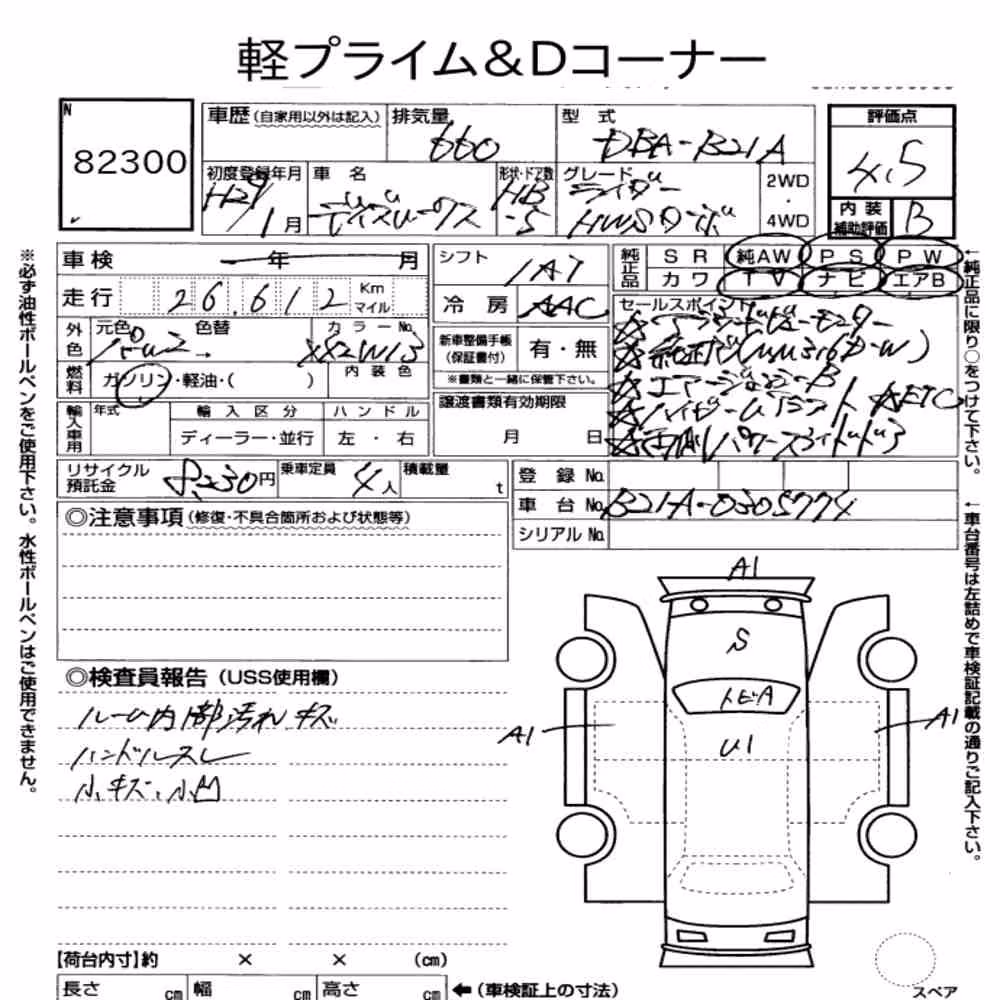 軽プライム&Dコーナー
N
82300
車歴 (自家用以外は記入)
排気量
660
型 式
DBA-B21A
評価点
4.5
初度登録年月
H29
1月
車 名
デイズルークス
形状・ドア数
HB
-5
グレード
ライダー
HWSターボ
2WD
・
4WD
内 装
補助評価
B
車検 年 月
走行 26,612 Km
マイル
シフト
1AT
冷 房
AAC
純正品
S R 純AW P S P W
カワ T V ナビ エアB
外色
元色 パール2
色替 →
カラーNo.
燃料
ガソリン・軽油・( )
内 装 色
新車整備手帳
(保証書付)
有・無
※書類と一緒に保管下さい。
セールスポイント
☆アラウンドビューモニター
☆エアーバッグ
☆ETC
輸入車用
年式
輸 入 区 分
ディーラー・並行
ハ ン ド ル
左 ・ 右
譲渡書類有効期限
月 日
リサイクル
預託金
8,230円
乗車定員
4人
積載量
t
登 録 No.
車 台 No. B21A-0305774
シリアル No.
◎注意事項 (修復・不具合箇所および状態等)
◎検査員報告 (USS使用欄)
ルーム内部汚れ キズ
ハンドルスレ
小キズ、小凹
A1
S
トビA
A1
U1
A1
【荷台内寸】約 × × (cm)
長さ cm 幅 cm 高さ cm
←(車検証上の寸法)
スペア
※必ず油性ボールペンをご使用下さい。水性ボールペンはご使用できません。
←純正品に限り○をつけて下さい。
←車台番号は左詰めで車検証記載の通りご記入下さい。